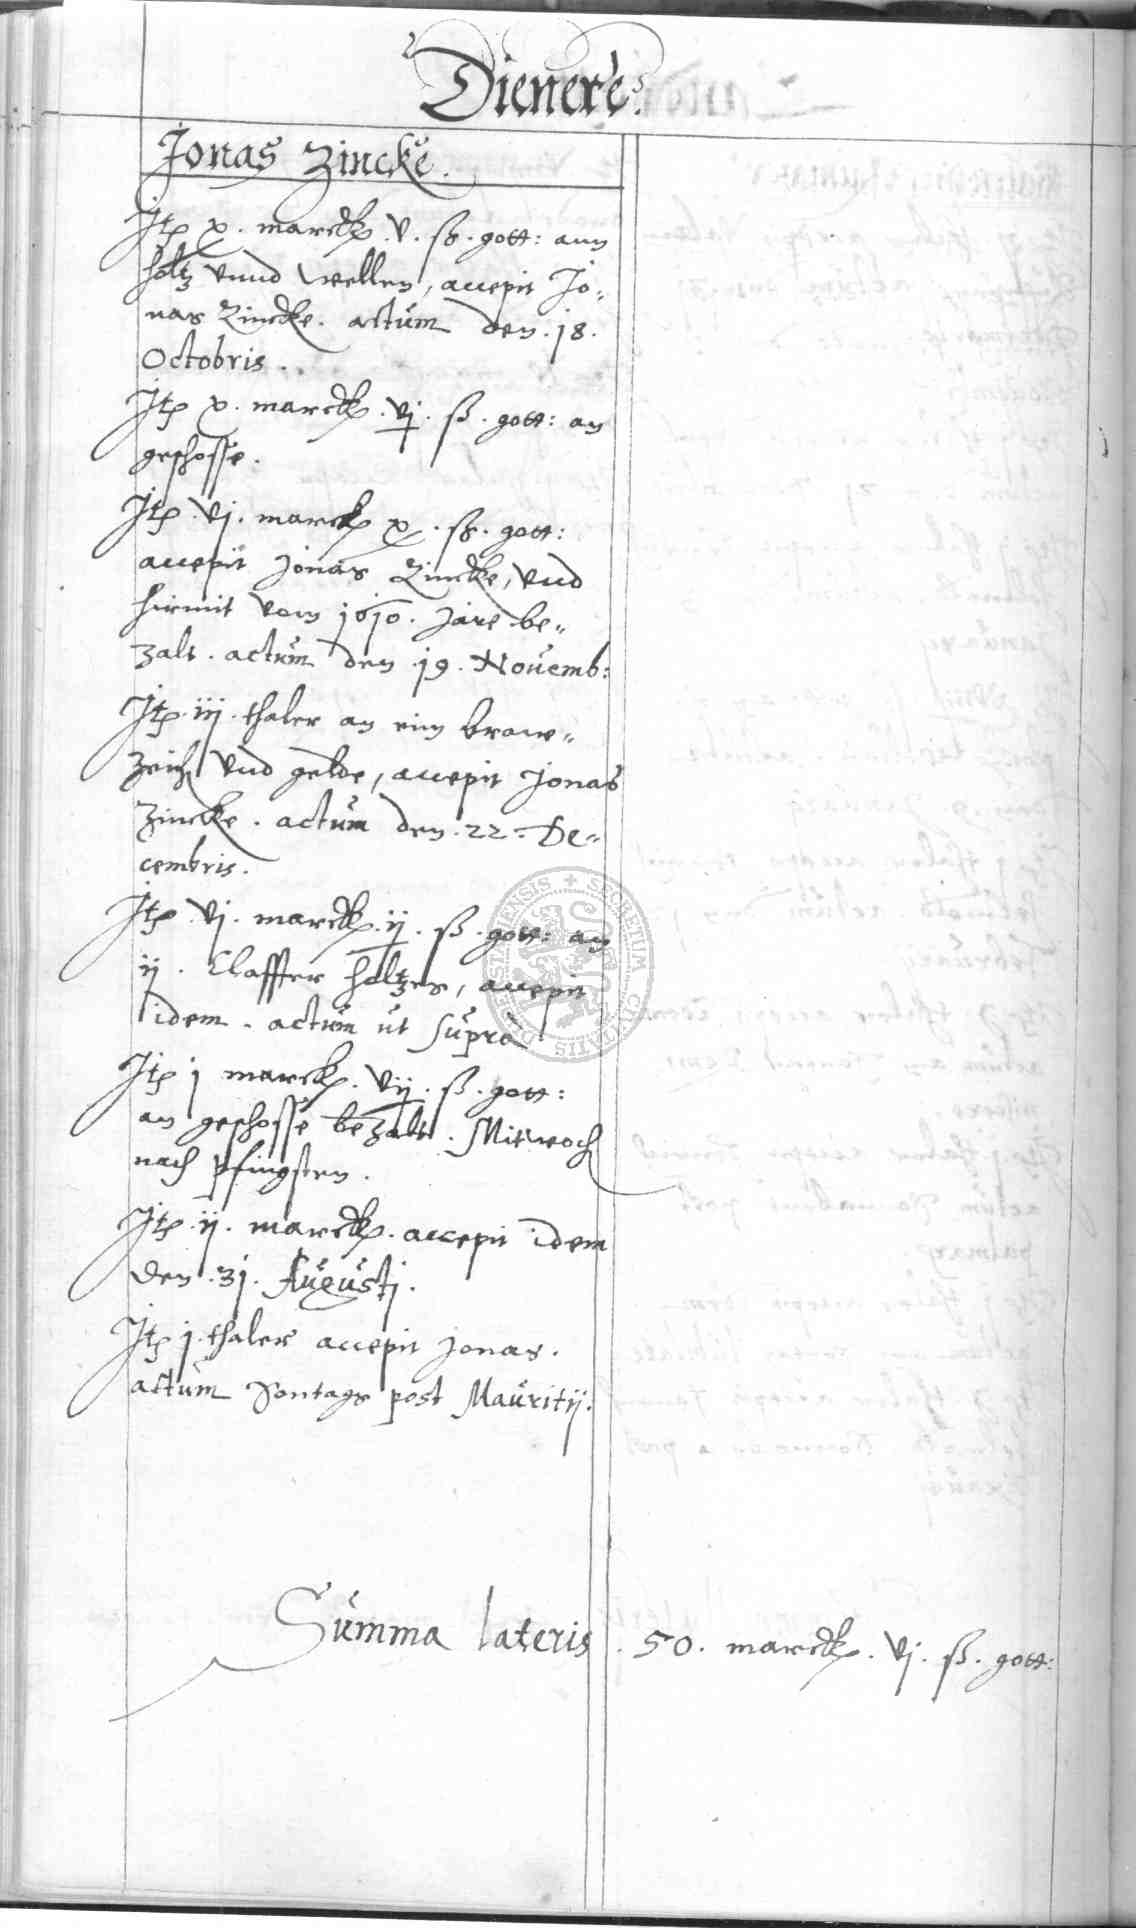 Dienere.
Jonas Zincke.
Itẽ x. marck. v. ß. gott: ann
holtz vnnd wellen, accepit Jo„
nas Zincke. actum den .18.
Octobris.
Itẽ x. marck. vj. ß. gott: an
geschosse.
Itẽ vj. marck x. ß. gott:
accepit Jonas Zincke, vnd
hirmit vom 1610. Jare be„
zalt. actum den .19. Novemb:
Itẽ iij. thaler an ein braw„
zeich vnd gelde, accepit Jonas
Zincke. actum den .22. De„
cembris.
Itẽ vj. marck. ij. ß. gott: an
ij. Claffter holtzes, accepit
idem. actum ut supra
Itẽ j marck. vij. ß. gott:
an geschosse bezalt. Mitwoch
nach Pfingsten.
Itẽ ij. marck. accepit idem
den .31. Augustj.
Itẽ j. thaler accepit Jonas.
actum Sontags post Mauritij.
Summa lateris . 50. marck. vj. ß. gott:
SECRETUM CIVITATIS